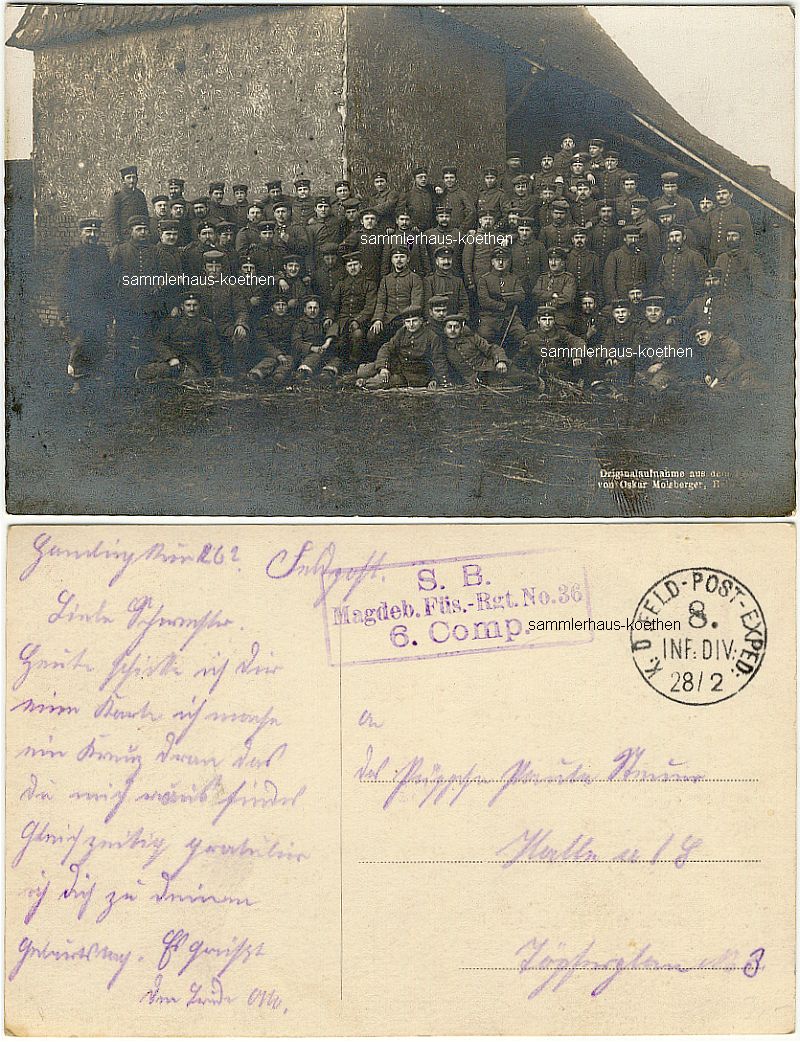 sammlerhaus-koethen
sammlerhaus-koethen
sammlerhaus-koethen
Originalaufnahme aus dem
von Oskar Molzberger, H
Feldpost.
S. B.
Magdeb. Füs.-Rgt. No. 36
6. Comp.
sammlerhaus-koethen
K. D. FELD-POST-EXPED:
8.
INF: DIV:
28/2
Liebe Schwester.
Heute schicke ich dir
eine Karte ich mache
ein Kreuz dran das
du mich raus findes
Gleichzeitig gratulier
ich dich zu deinen
Geburtstag. Es grüßt
Otto.
An
Paula
Halle a / S
3